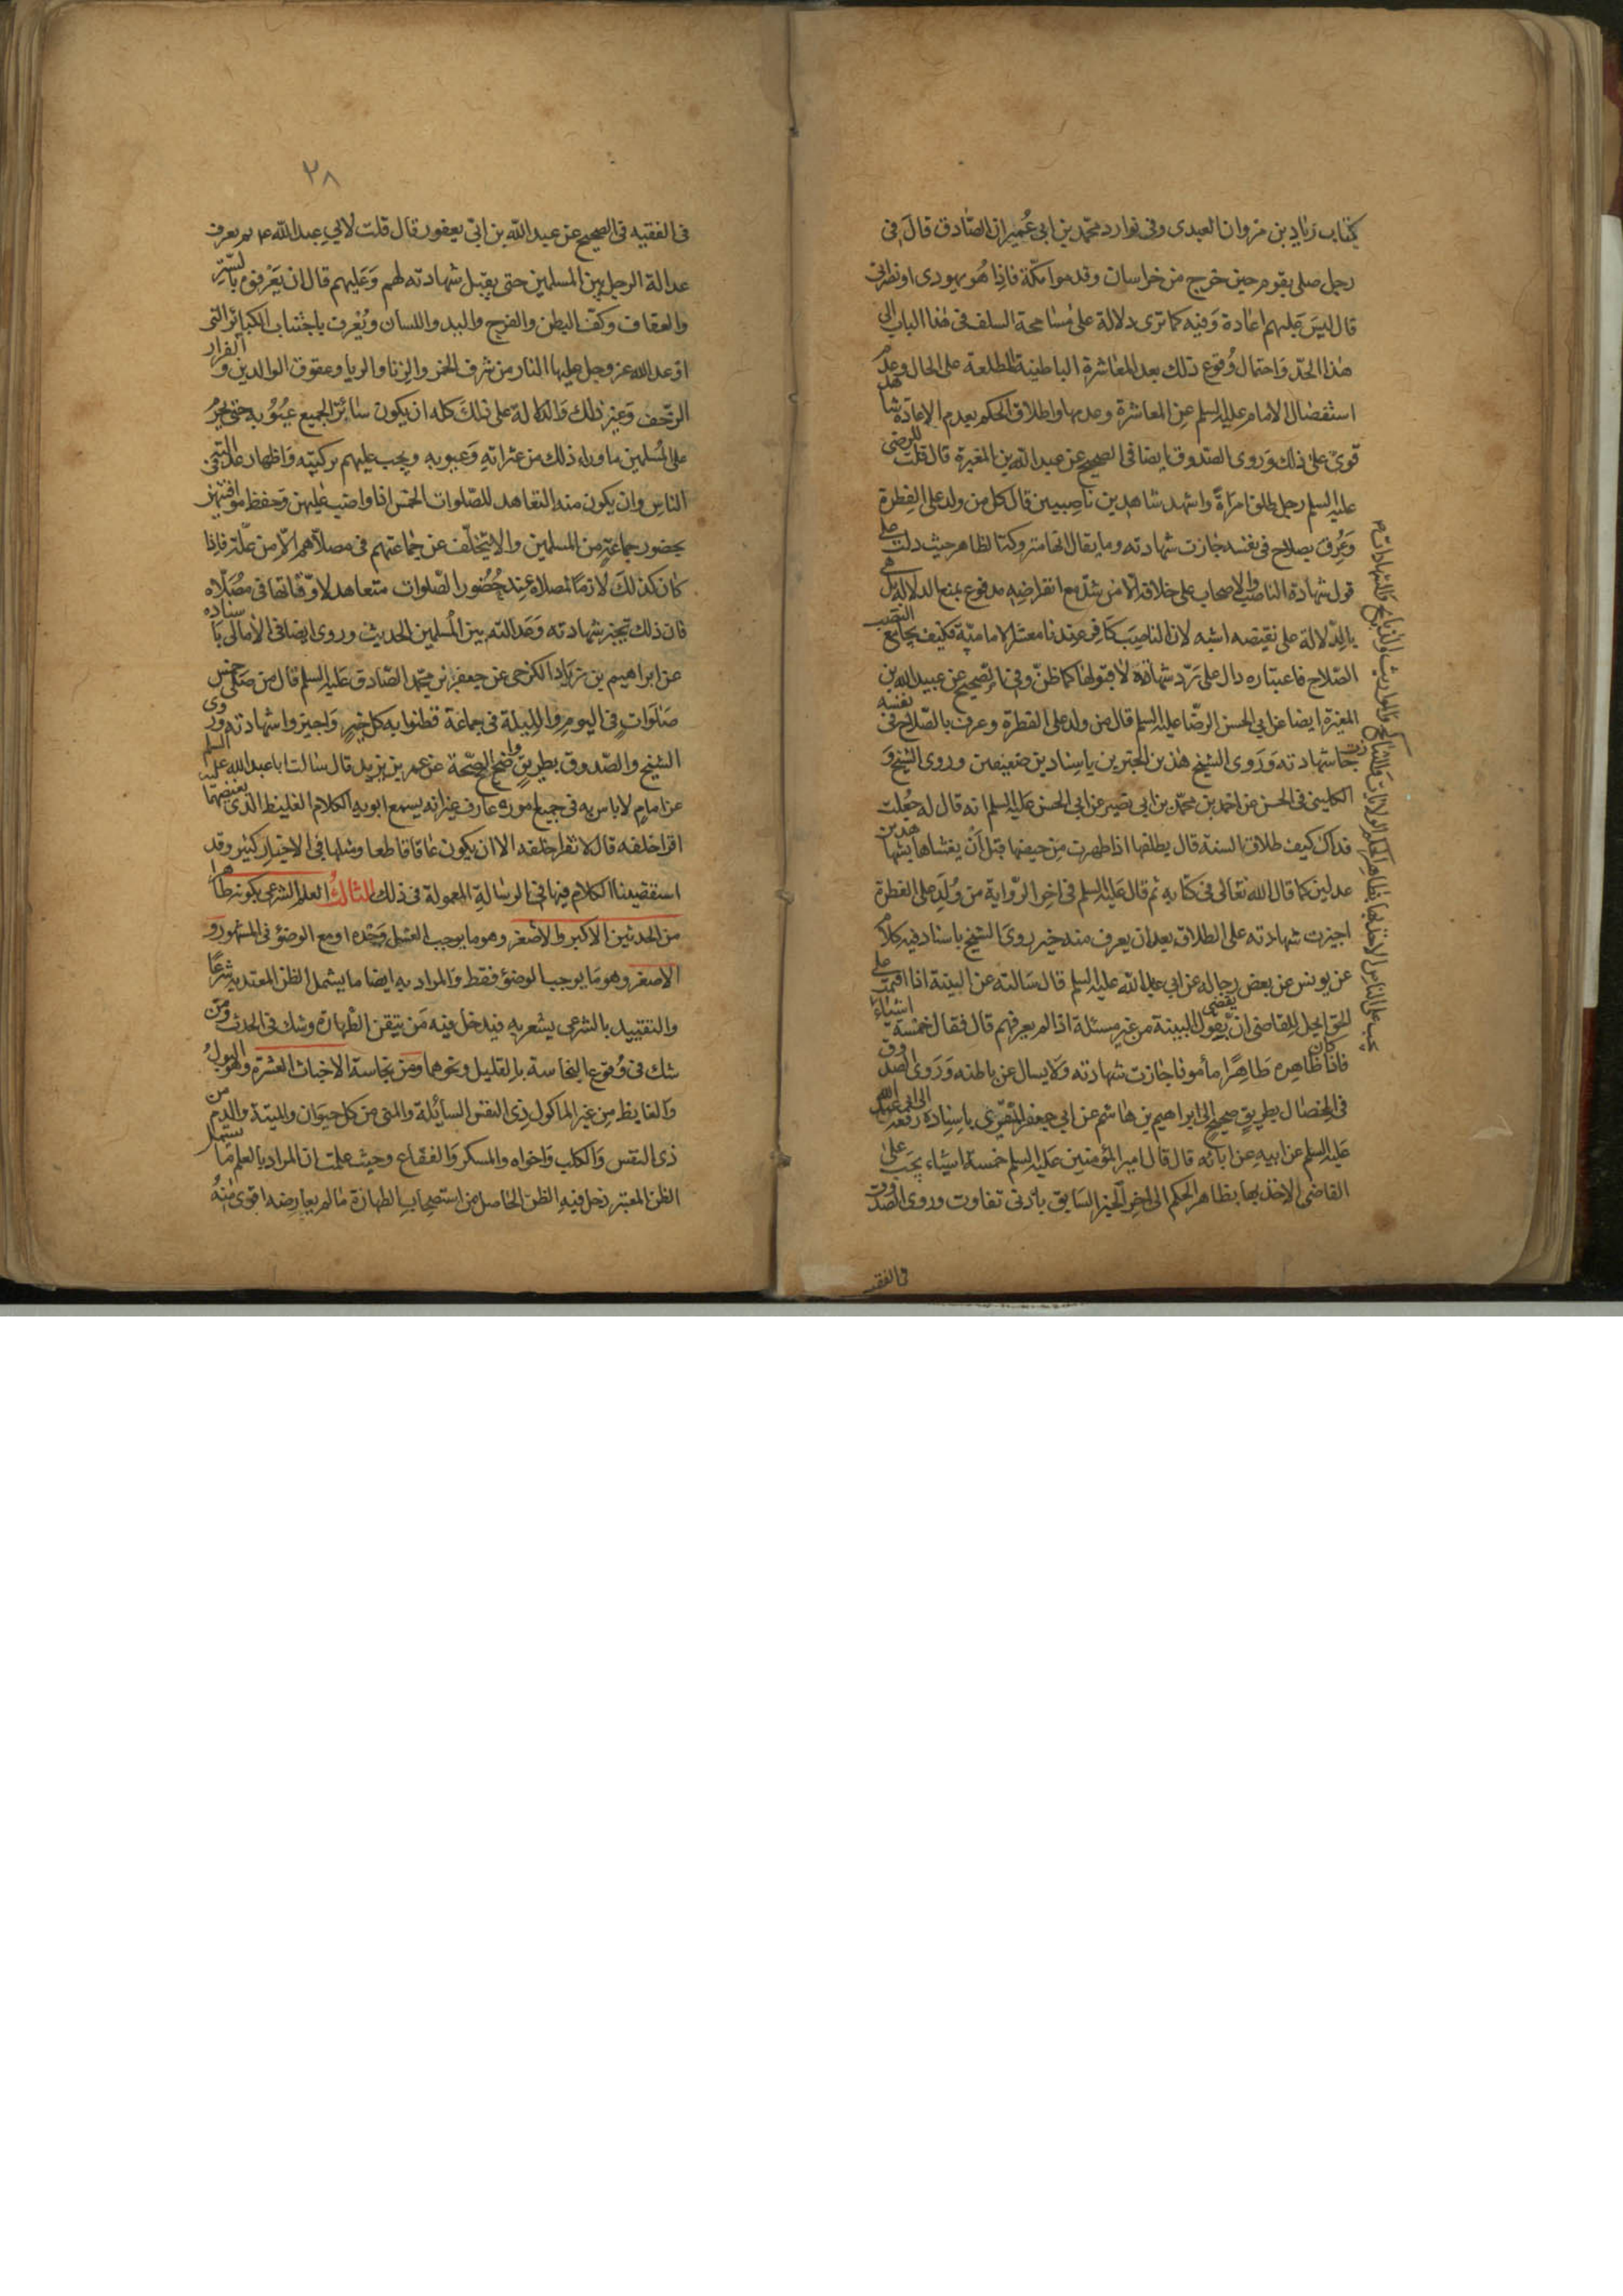 كتاب زياد بن مروان العبدى وفى نوادر محمد بن ابى عُمير ان الصّادق قالَ فى
رجل صلى بقوم حين خرج من خراسان وقدموا مكّة فاذا هُو يهودى او نصرانى
قال ليسَ عَليهم اعَادة وَفيه كما ترى دلالة على مُسَامحة السلف فى هٰذا الباب الى
هٰذا الحدّ وَاحتمال وُقوع ذلك بعد المعَاشرة الباطينة المطلعة على الحال وعدم
استفصال الامام عليه السلم عنِ المعاشرة وعدمها واطلاق الحكم بعدم الاعَادة شاهد
قوى على ذلك وَروى الصّدوق ايضا فى الصحيح عن عبد الله بن المغيرة قال قلت للرضى
عليه السلم رجل طلق امرَاةً واشهد شاهدين ناصِبيين قال كل من ولد على الفِطرة
وَعُرِف بصلاح فى نفسه جَازت شهادته وما يقال انها متروكة الظاهر حيث دلت على
قبول شهَادة الناصب والاصحاب على خلافه الّا من شذّ مع انقراضِهِ مدفوع بمنع الدلالة بل هى
بالدّلالة على نقيضه اشبه لان الناصِبَ كَافر عِندنا معشر الاماميّة فكيف يجامع النصب
الصّلاح فاعتباره دال على رَدّ شهادته لا قبولهٰا كما ظنّ وفى الصّحيح عن عبيد الله بن
المغيرة ايضا عن ابى الحسن الرضّا عليه السلم قال من ولد على الفطرة وعرف بالصّلاح فى نفسه
جازت شهادته وَرَوى الشيخ هٰذين الخبرين باسنادين ضعيفين وروى الشيخ وَ
الكلينى فى الحسن عن احمد بن محمّد بن ابى نصير عن ابى الحسن عليه السلم انه قال له جُعِلت
فداك كيف طلاق السنة قال يطلقها اذا طهرت مِن حيضها قبل اَنْ يغشاها بشاهدين
عدلين كما قال الله تعَالى فى كتابه ثم قال عَليه السلم فى اخِر الرّواية من وُلِدَ على الفطرة
اجيزت شهَادته على الطلاق بعد ان يعرف منه خير روىَ الشيخ باسناد فيه كلام
عن يونس عن بعض رجاله عن ابى عبد الله عليه السلم قال سَالته عن البينة اذا اقيمت على
الحق ايحل للقاضى ان يقضى بقول البينة من غير مسئلة اذا لم يعرفهم قال فقال خمسة اشيَاءَ
فاذا كان ظَاهِره ظَاهِرًا مأمونا جَازت شهادته وَلا يسال عن باطنه وَرَوى الصدوق
فى الخصال بطريق صحيح الى ابراهيم بن هَاشم عن ابى جعفر المقرى باسِناده رفعه الى ابى عبد الله
عَليه السلم عن ابيه عن ابائه قال قال امير المؤمنين عَليه السلم خمسة اشيَاء يجَب على
القاضى الاخذ بها بظاهر الحكم الى اخِر الخبر السَابق بادنى تفاوت وروى الصّدوق
فى الفقيه
٢٨
فى الفقيه فى الصحيح عن عبد الله بن ابى يعفور قال قلت لابى عبد الله ع بم يعرف
عدالة الرجل بين المسلمين حتى يقبل شهادته لهم وَعَليهم قال ان يَعْرفوه بالستر
والعفاف وَكفّ البطن والفرج واليد واللسان ويُعْرف باجْتناب الكبائر التى
اوعد الله عز وجل عليها النار من شرب الخمر والزِنا والربا وعقوق الوالدين والفرار
الزحف وَغير ذلك وَالدلالة على ذلكَ كله ان يكون سَاتِرًا لجميع عُيُوبه حتى يحرُم
على المُسلمين ما وراء ذلك من عثراتهِ وَعيوبه ويجب عليهم تزكيته وَاظهار عدالته فى
الناس وان يكون منه التعاهد للصّلوات الخمس اذا واضب عليهن وَحفظ مواقيتهن
بحضور جماعَةٍ من المسلمين والا يتخلّف عن جمَاعتهم فى مصلاّهم الّا من علّة فاذا
كان كذلكَ لازمًا لمصلاه عِند حُضُور الصّلوات متعاهد لاوقاتها فى مُصَلّاه
فان ذلك تجيز شهادته وَعدالته بين المُسلمين الحديث وروى ايضا فى الأمالى باسناده
عن ابراهيم بن زيَاد الكرخى عن جعفر بن محمد الصّادق عَليه السلم قال من صَلّى خمس
صَلَواتٍ فى اليوم والليلة فى جماعة فظنوا به كل خيرٍ وَاجيزوا شهَادته وروى
الشيخ والصّدوق بطريق واضح الصّحة عن عمر بن يزيد قال سَالت ابا عبد الله عليه السلم
عن امامٍ لاباس به فى جميع اموره عارف غير انه يسمع ابويه الكلام الغليظ الذى يغيضهما
اقرا خلفه قال لا تقرا خلفه الا ان يكون عَاقا قاطعا ومثلها فى الاخبار كثير وقد
استقصينا الكلام فيها فى الرسَالةِ المعمولة فى ذلك الثالثُ العلم الشرعى بكونه طاهرا
من الحدثين الاكبر والاصغر وهو ما يوجب الغسل وَحْده او مع الوضؤ فى المشهور وَ
الاصغر وهو مَا يوجب الوضؤ فقط وَالمراد به ايضا ما يشمل الظن المعتد به شرعًا
والتقييد بالشرعى يشعر به فيدخل فيه مَن تيقن الطّهَارة وشك فى الحدث ومَن
شك فى وُقوع النجاسة بالقليل ونحوهما وَمن نجاسة الاخباث العَشرة وَهُو البولُ
وَالغايط مِن غير الماكول ذى النفس السائلة والمنى من كل حيَوان والميتة والدم من
ذى النفس وَالكلب وَاخواه والمسكر وَالفقاع وحيث علمت ان المراد بالعلم مَا يشمل
الظن المعتبر دخل فيهِ الظن الحَاصل من استصحابِ الطهارة مَا لم يعارضه اقوى مِنْهُ